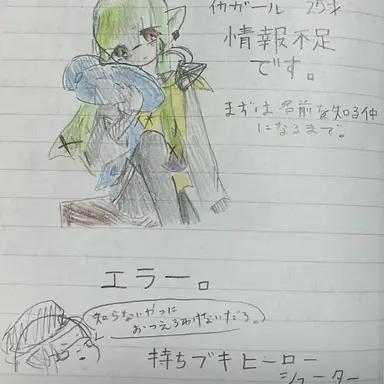 イカガール 25才
情報不足
です。
まずは名前を知る仲
になるまで。
エラー。
知らないやつに
おしえるわけないだろ。
持ちブキヒーロー
シューター